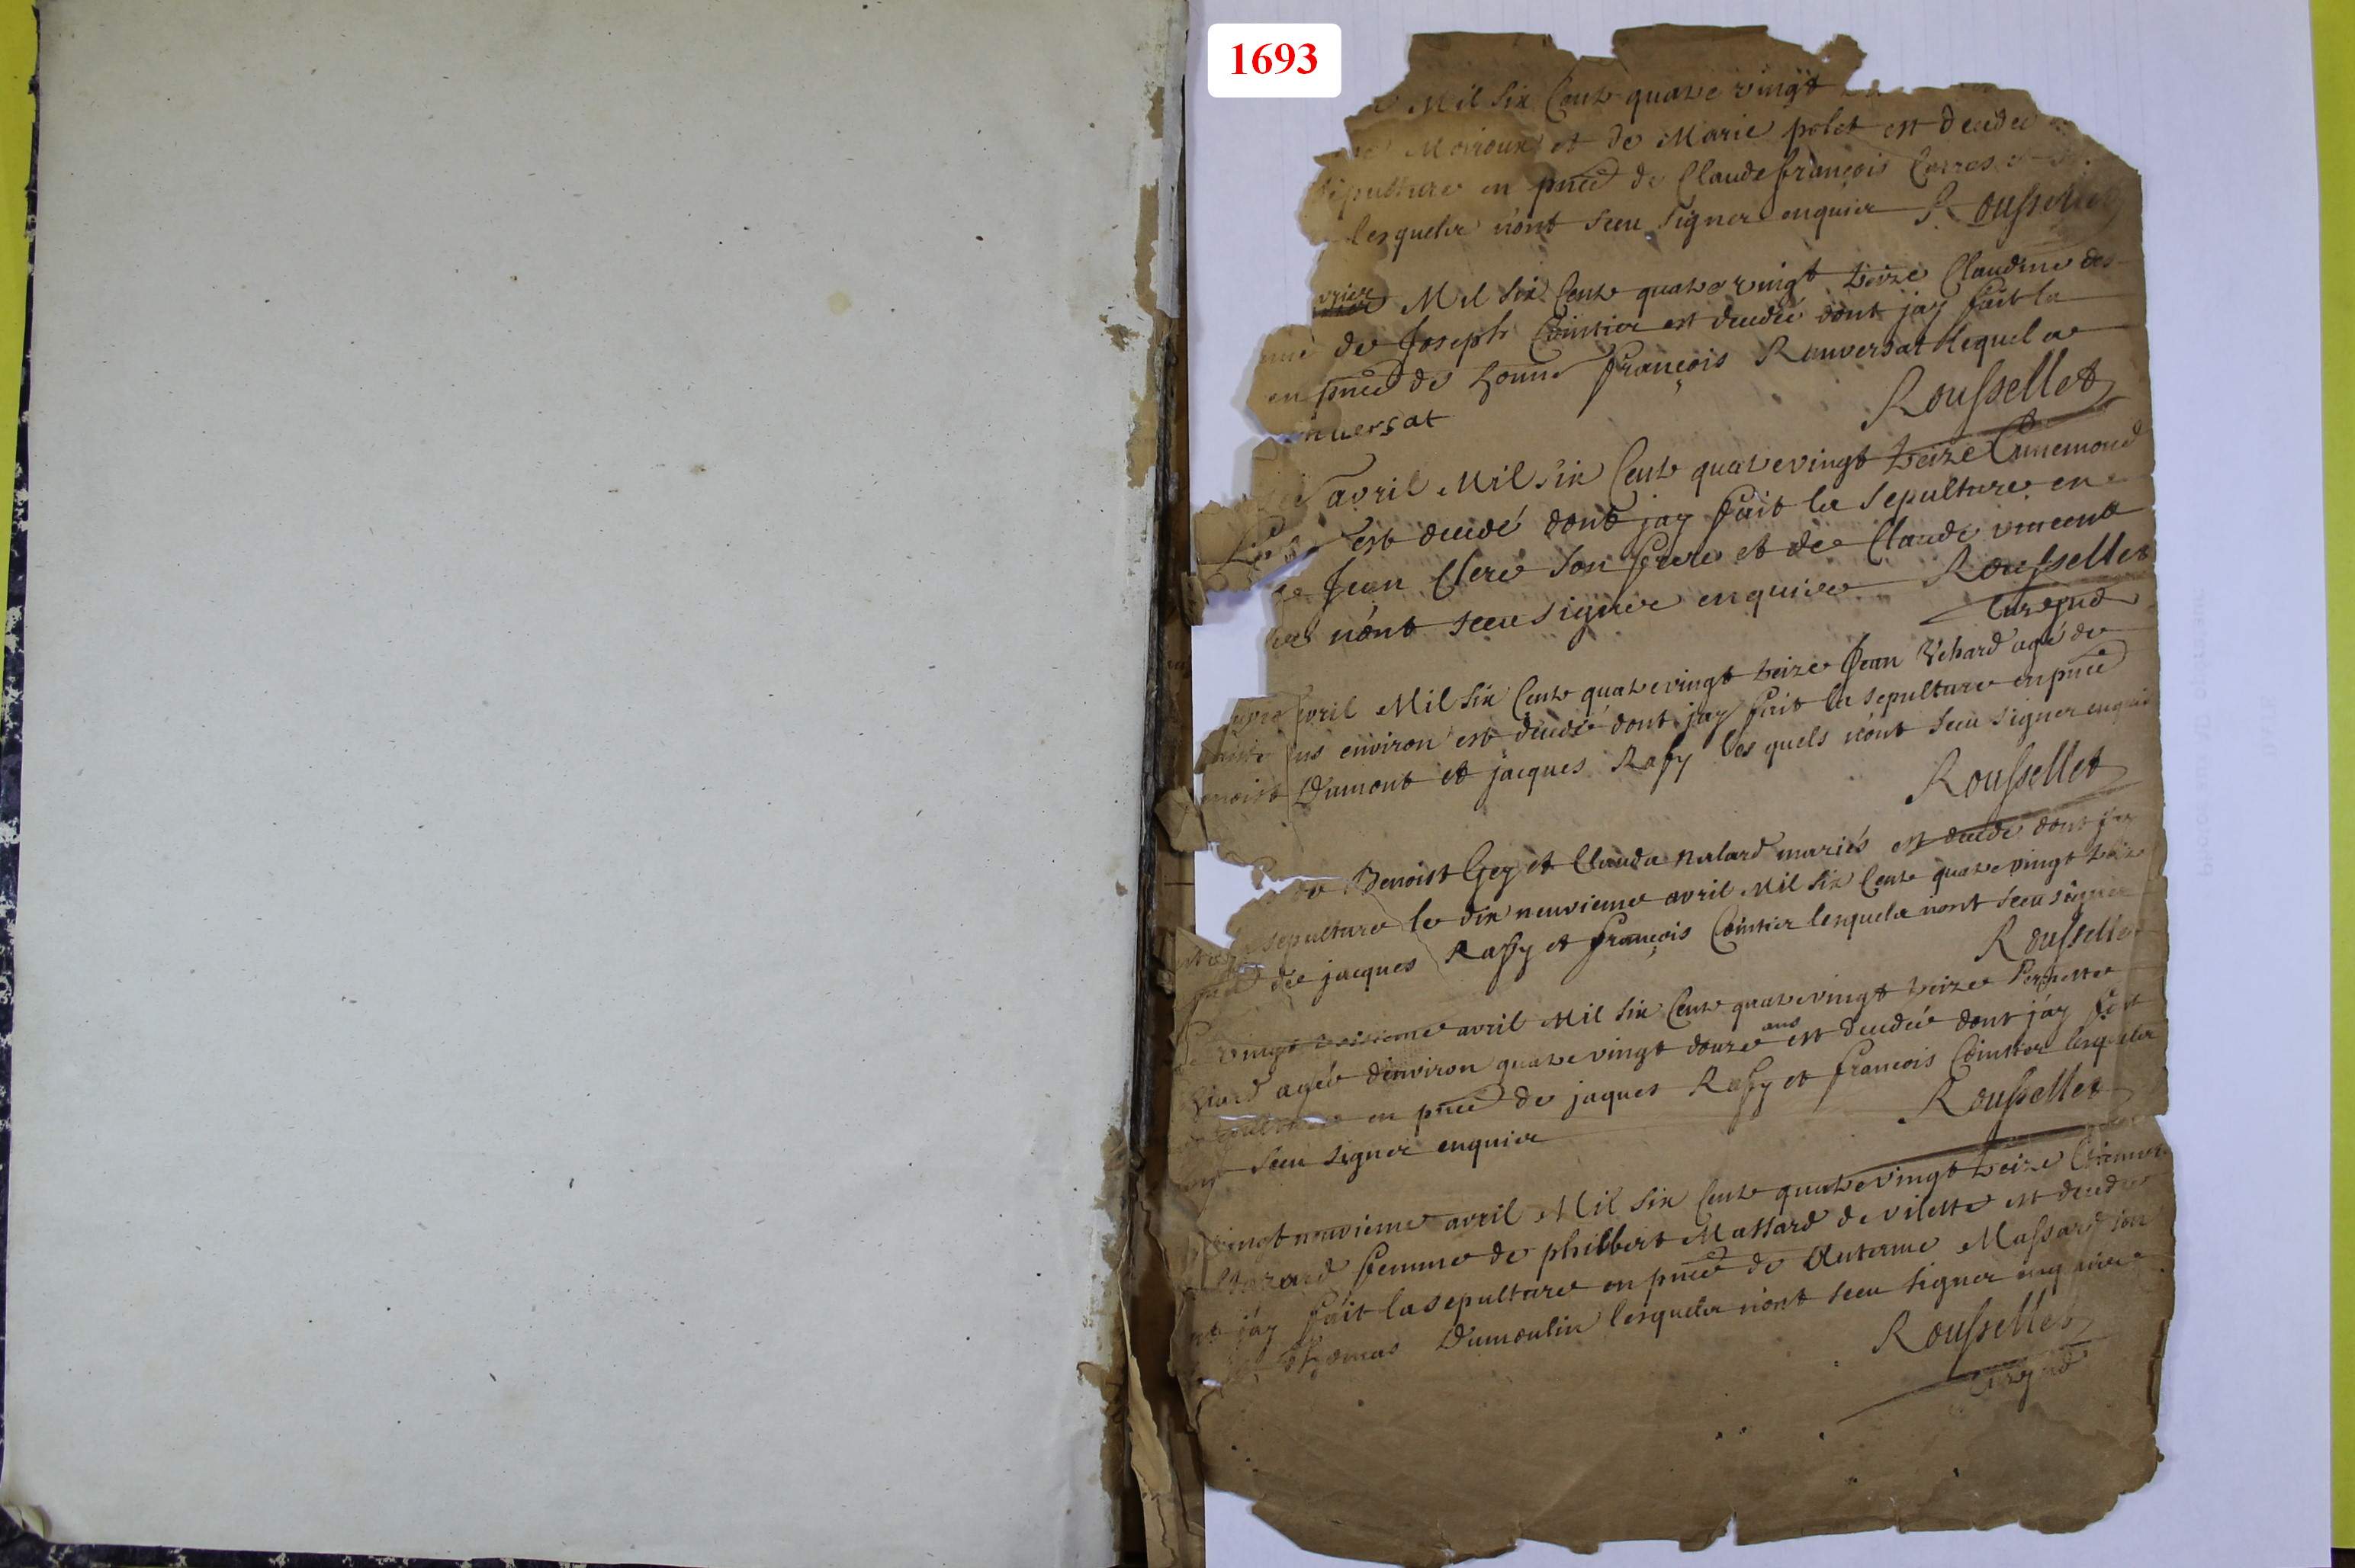 1693
Mil six Cents quatre vingt
Moiroux et de Marie polet est decedee
sepulture en pnce de Claude françois
lesquels n'ont sceu signer enquier Roussellet
vrier Mil six Cents quatre vingt treize Claudine des
de Joseph Cointier est decedée dont jay fait la
en pnce de honne françois Ranversat lequel a
nversat Roussellet
avril Mil six Cents quatre vingt treize Annemond
est decedé dont jay fait la sepulture en
Jean Clerc son frere et de Claude vincent
n'ont sceu signer enquier Roussellet
Curé pnd
avril Mil six Cents quatre vingt treize Jean Vehard agé de
ans environ est decedé dont jay fait la sepulture en pnce
Dumont et jacques Rafy lesquels n'ont sceu signer enquis
Roussellet
de Benoist Gey et Clauda nalard mariés est decedé dont jay
sepulture le dix neuvieme avril Mil six Cents quatre vingt treize
de jacques Raffy et françois Cointier lesquels n'ont sceu signer
Roussellet
vingt troisieme avril Mil six Cents quatre vingt treize Pernette
agée d'environ quatre vingt douze ans est decedée dont jay fait
en pnce de jaques Raffy et francois Cointier lesquels
sceu signer enquier Roussellet
vingt neuvieme avril Mil six Cents quatre vingt treize
femme de philibert Massard de vilette est decedee
jay fait la sepulture en pnce de Antoine Massard son
Thomas Dumoulin lesquels n'ont sceu signer enquier
Roussellet
Curé pnd